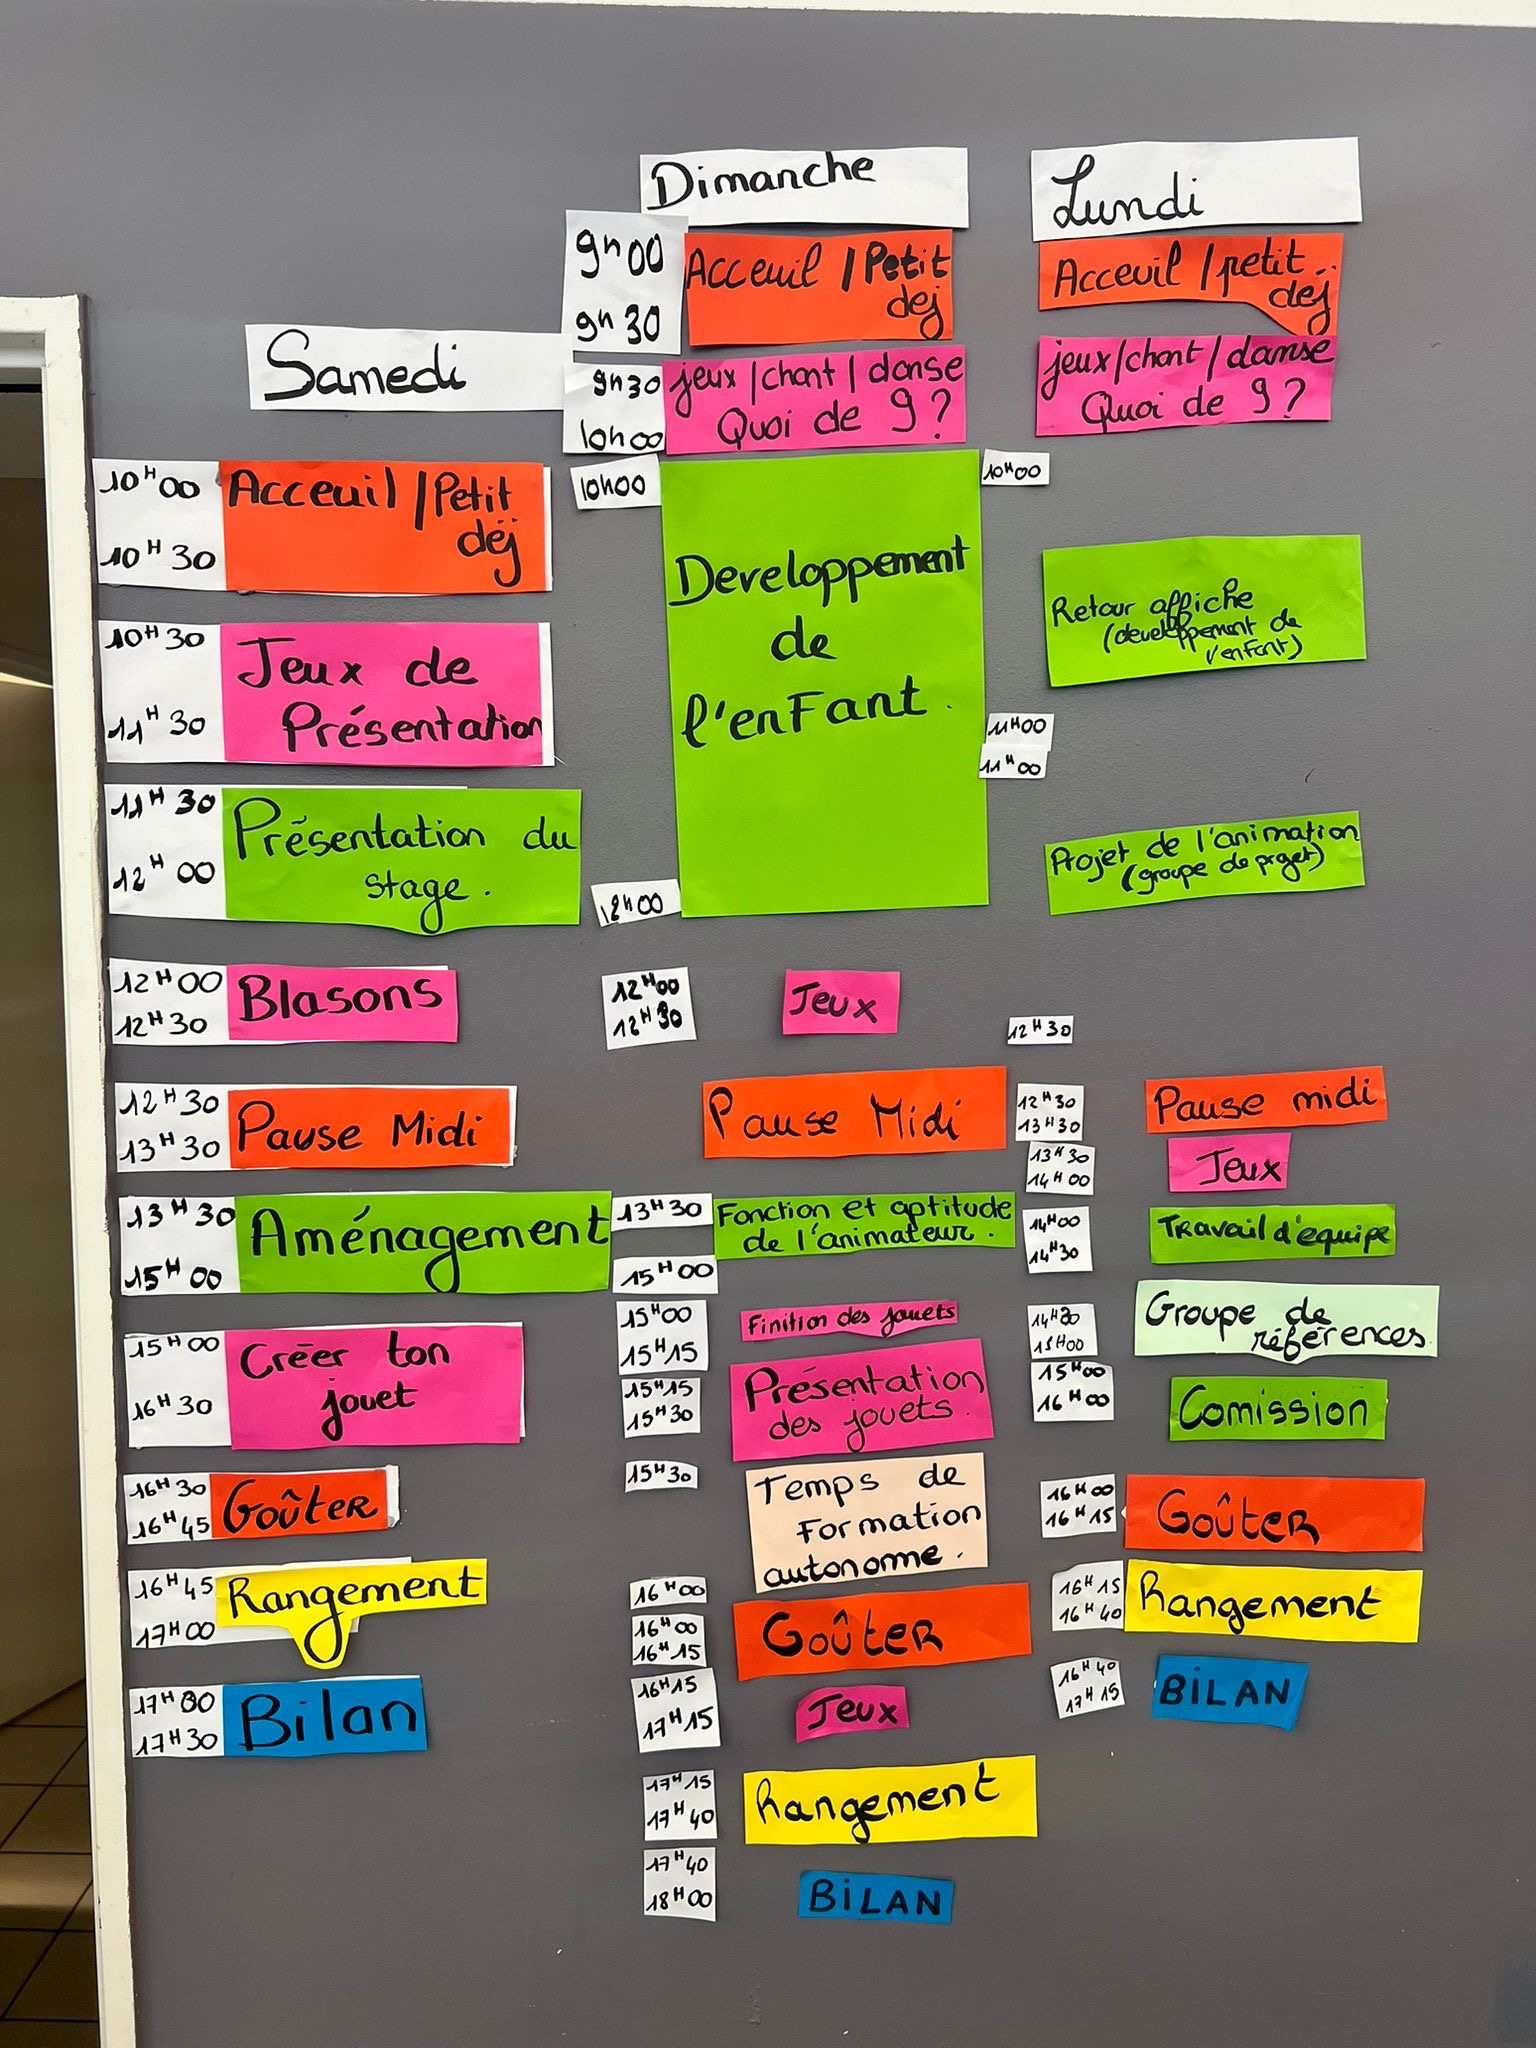 Samedi
10H00
10H30
Acceuil / Petit
déj
10H30
11H30
Jeux de
Présentation
11H30
12H00
Présentation du
stage.
12H00
12H30
Blasons
12H30
13H30
Pause Midi
13H30
15H00
Aménagement
15H00
16H30
Créer ton
jouet
16H30
16H45
Goûter
16H45
17H00
Rangement
17H00
17H30
Bilan
Dimanche
9h00
9h30
Acceuil / Petit
dej
9h30
10h00
jeux / chant / danse
Quoi de 9 ?
10h00
12H00
Developpement
de
l'enFant.
12H00
12H30
Jeux
Pause Midi
13H30
15H00
Fonction et aptitude
de l'animateur.
15H00
15H15
Finition des jouets
15H15
15H30
Présentation
des jouets.
15H30
16H00
Temps de
Formation
autonome.
16H00
16H15
Goûter
16H15
17H15
Jeux
17H15
17H40
Rangement
17H40
18H00
BiLAN
Lundi
Acceuil / petit
déj
jeux / chant / danse
Quoi de 9 ?
10H00
11H00
Retour affiche
(developpement de
l'enfant)
11H00
12H30
Projet de l'animation
(groupe de projet)
12H30
13H30
Pause midi
13H30
14H00
Jeux
14H00
14H30
Travail d'équipe
14H30
15H00
Groupe de
références.
15H00
16H00
Comission
16H00
16H15
Goûter
16H15
16H40
Rangement
16H40
17H15
BiLAN